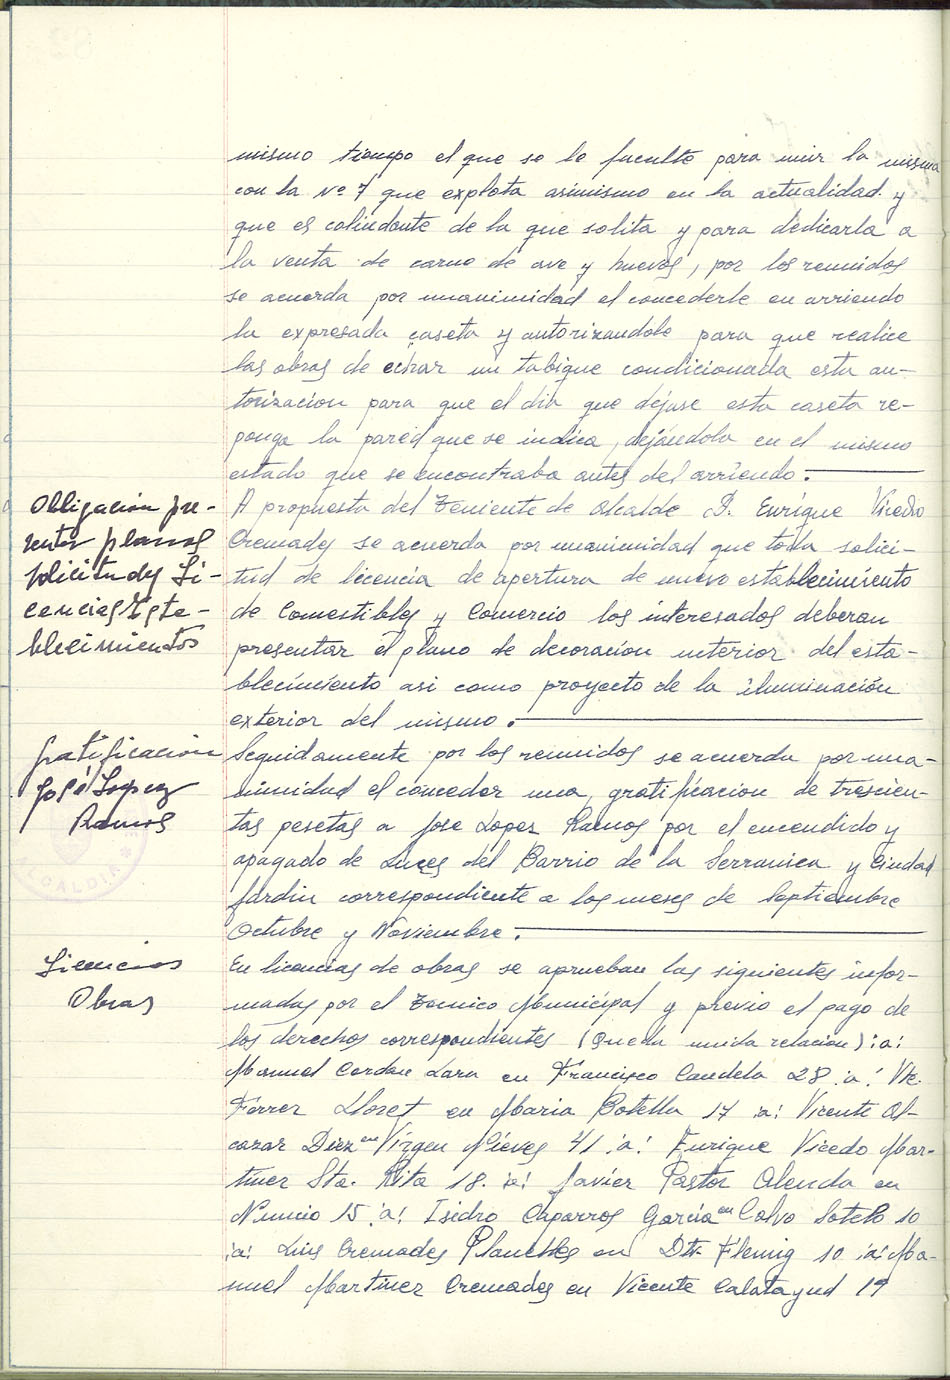 mismo tiempo el que se le faculte para unir la misma
con la nº 7 que explota asimismo en la actualidad y
que es colindante de la que solita y para dedicarla a
la venta de carne de ave y huevos, por los reunidos
se acuerda por unanimidad el concederle en arriendo
la expresada caseta y autorizandole para que realice
las obras de echar un tabique condicionada esta au-
torizacion para que el dia que dejase esta caseta re-
ponga la pared que se indica, dejándola en el mismo
estado que se encontraba antes del arriendo.
Obligación pre-
sentar planos
solicitudes Li-
cencias Esta-
blecimientos
A propuesta del Teniente de Alcalde D. Enrique Vicedo
Cremades se acuerda por unanimidad que toda solici-
tud de licencia de apertura de nuevo establecimiento
de Comestibles y Comercio los interesados deberan
presentar el plano de decoracion interior del esta-
blecimiento asi como proyecto de la iluminación
exterior del mismo.
Gratificación
José Lopez
Ramos
Seguidamente por los reunidos se acuerda por una-
nimidad el conceder una gratificacion de trescien-
tas pesetas a Jose Lopez Ramos por el encendido y
apagado de Luces del Barrio de la Serranica y Ciudad
Jardin correspondiente a los meses de Septiembre
Octubre y Noviembre.
ALCALDIA
Licencias
Obras
En licencias de obras se aprueban las siguientes infor-
madas por el Tecnico Municipal y previo el pago de
los derechos correspondientes (Queda unida relacion): a:
Manuel Cerdan Lara en Francisco Candela 28 :a: Vte.
Ferrer Lloret en Maria Botella 17 :a: Vicente Al-
cazar Diez en Virgen Nieves 41 :a: Enrique Vicedo Mar-
tinez Sta. Rita 18. :a: Javier Pastor Alenda en
Nuncio 15 :a: Isidro Caparros García en Calvo Sotelo 10
:a: Luis Cremades Planelles en Dtr. Flemig 10 :a: Ma-
nuel Martinez Cremades en Vicente Calatayud 19